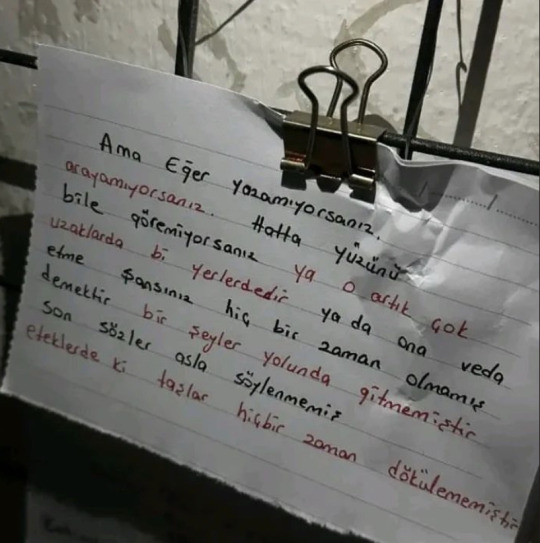 Ama Eğer yazamıyorsanız.
arayamıyorsanız. Hatta yüzünü
bile göremiyorsanız ya o artık çok
uzaklarda bi yerlerdedir ya da ona veda
etme şansınız hiç bir zaman olmamış
demektir bir şeyler yolunda gitmemiştir
son sözler asla söylenmemiş
eteklerde ki taşlar hiçbir zaman dökülememiştir